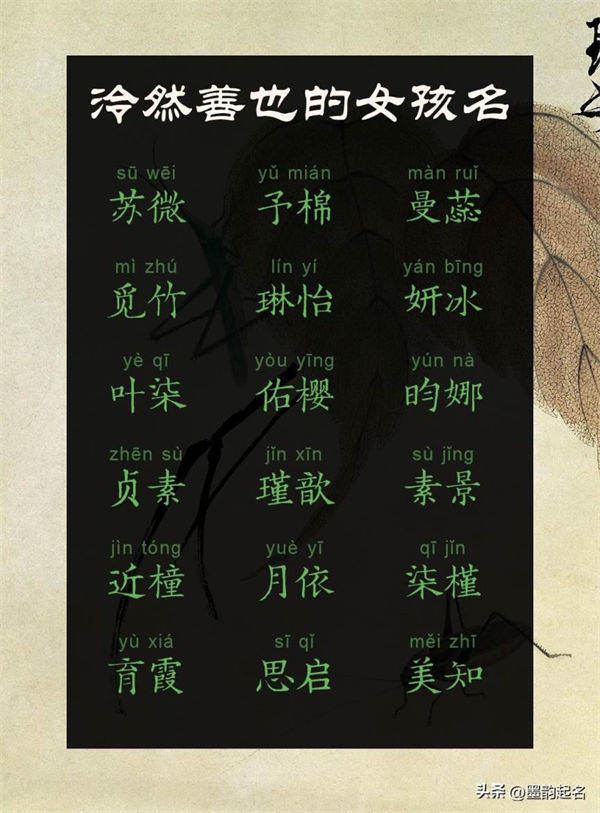 泠然善也的女孩名
sū wēi yǔ mián màn ruǐ
苏微 予棉 曼蕊
mì zhú lín yí yán bīng
觅竹 琳怡 妍冰
yè qī yòu yīng yún nà
叶柒 佑樱 昀娜
zhēn sù jǐn xīn sù jǐng
贞素 瑾歆 素景
jìn tóng yuè yī qī jǐn
近橦 月依 柒槿
yù xiá sī qǐ měi zhī
育霞 思启 美知
头条 @墨韵起名